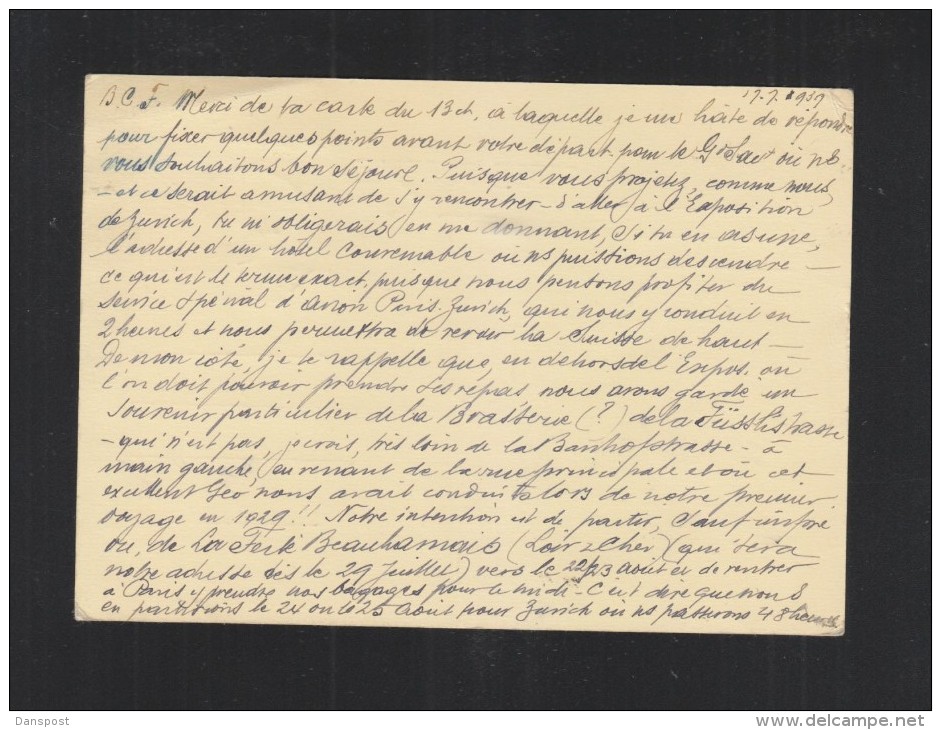 17.7.1939
B.C.F. Merci de ta carte du 13 ct, à laquelle je me hâte de répondre
pour fixer quelques points avant votre départ pour le Gd où ns
vous souhaitons bon séjour. Puisque vous projetez, comme nous,
- et ce serait amusant de s'y rencontrer - d'aller à l'Exposition
de Zurich, tu m'obligerais en me donnant, si tu en as une,
l'adresse d'un hotel convenable où ns puissions descendre -
ce qui est le terme exact, puisque nous pensons profiter du
service spécial d'avion Paris-Zurich, qui nous y conduit en
2 heures et nous permettra de revoir la Suisse de haut -
De mon côté, je te rappelle que, en dehors de l'Expos. où
l'on doit pouvoir prendre des repas, nous avons gardé un
souvenir particulier de la Brasserie (?) de la Füsslistrasse
- qui n'est pas, je crois, très loin de la Banhofstrasse - à
main gauche, en venant de la rue principale et où cet
excellent Géo nous avait conduits lors de notre premier
voyage en 1929!! Notre intention est de partir, sauf impré
vu, de La Ferté Beauharnais (Loir & Cher) (qui sera
notre adresse dès le 29 Juillet) vers le 22/23 août et de rentrer
à Paris y prendre nos bagages pour le midi - C'est dire que nous
en partirions le 24 ou le 25 août pour Zurich où ns passerons 48 heures
Danspost
www.delcampe.net